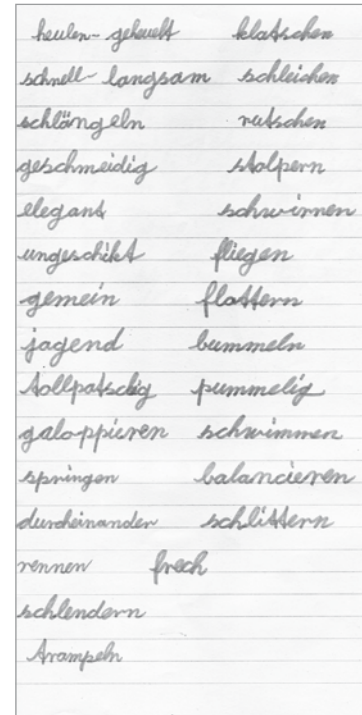 heulen - geheuelt klatschen
schnell - langsam schleichen
schlängeln rutschen
geschmeidig stolpern
elegant schwirnen
ungeschikt fliegen
gemein flattern
jagend bummeln
tollpatschig pummelig
galoppieren schwimmen
springen balancieren
durcheinander schlittern
rennen frech
schlendern
trampeln